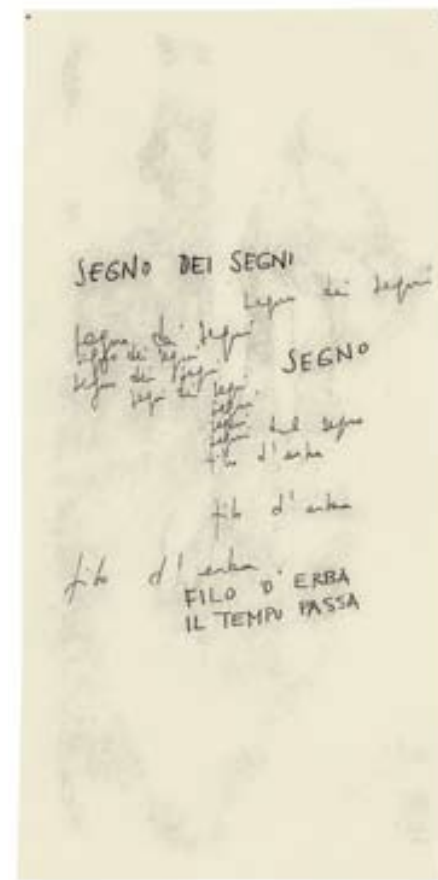 SEGNO DEI SEGNI
segno dei segni
segno dei segni
segno dei segni
SEGNO
segno dei segni
segni dei segni
segni
segni
segni del segno
filo d'erba
filo d'erba
filo d'erba
FILO D'ERBA
IL TEMPO PASSA